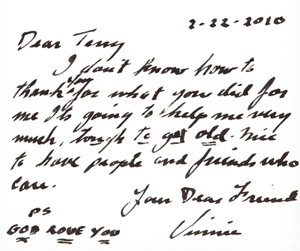 2-22-2010
Dear Terry
I don't know how to
thank you for what you did for
me Its going to help me very
much, tough to get old. nice
to have people and friends who
care.
Your Dear Friend
Vinnie
PS
GOD LOVE YOU